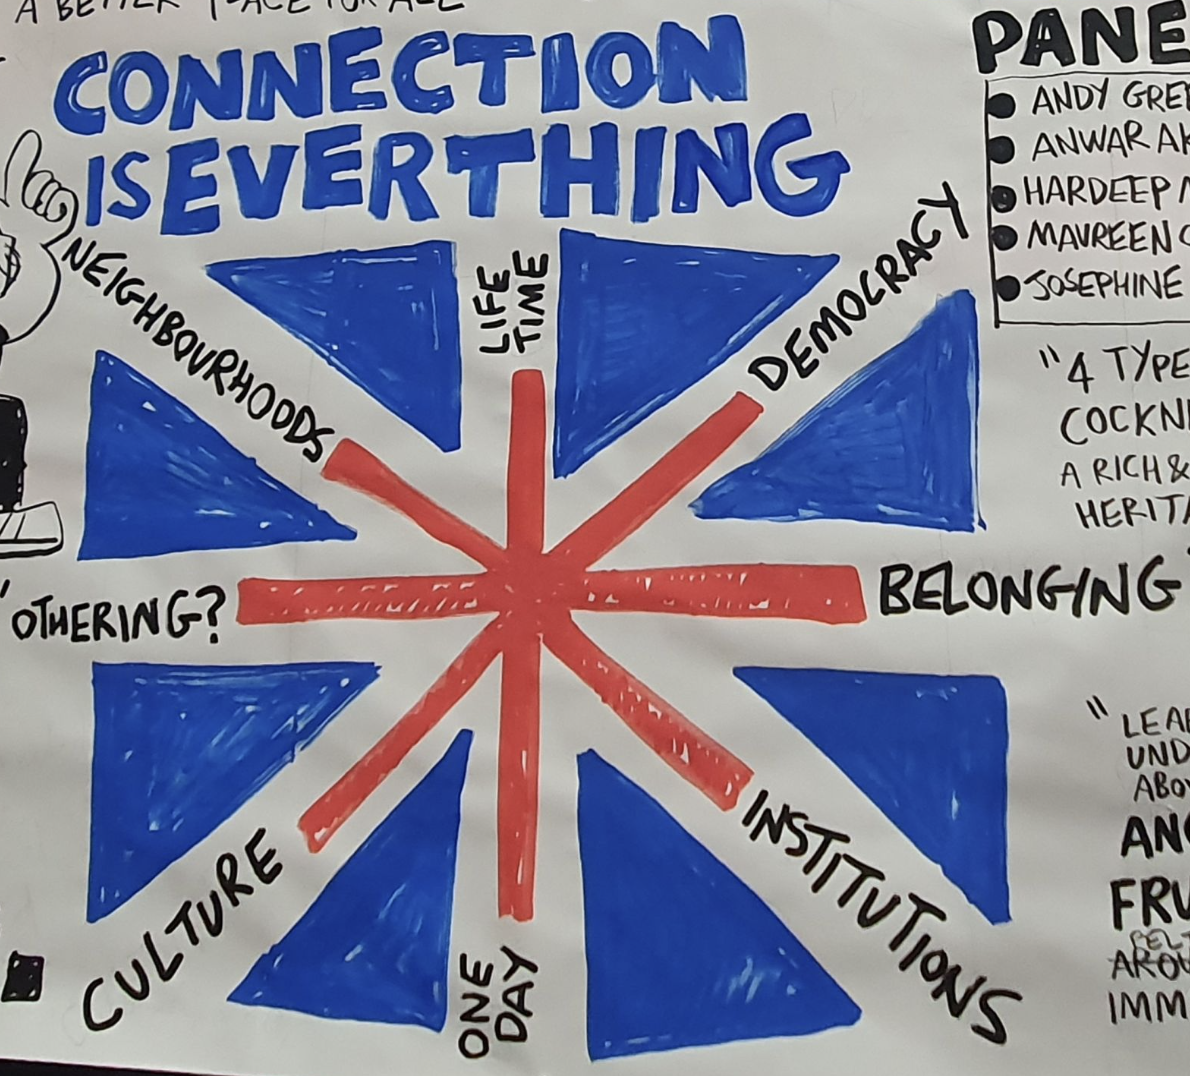 A BETTER PLACE FOR ALL
CONNECTION
IS EVERTHING
NEIGHBOURHOODS
LIFE
TIME
DEMOCRACY
"OTHERING?
BELONGING
CULTURE
ONE
DAY
INSTITUTIONS
PANE
ANDY GREE
ANWAR AK
HARDEEP
MAUREEN
JOSEPHINE
"4 TYPE
COCKN
A RICH &
HERITA
"LEA
UND
ABO
AN
FRU
AROU
IMM